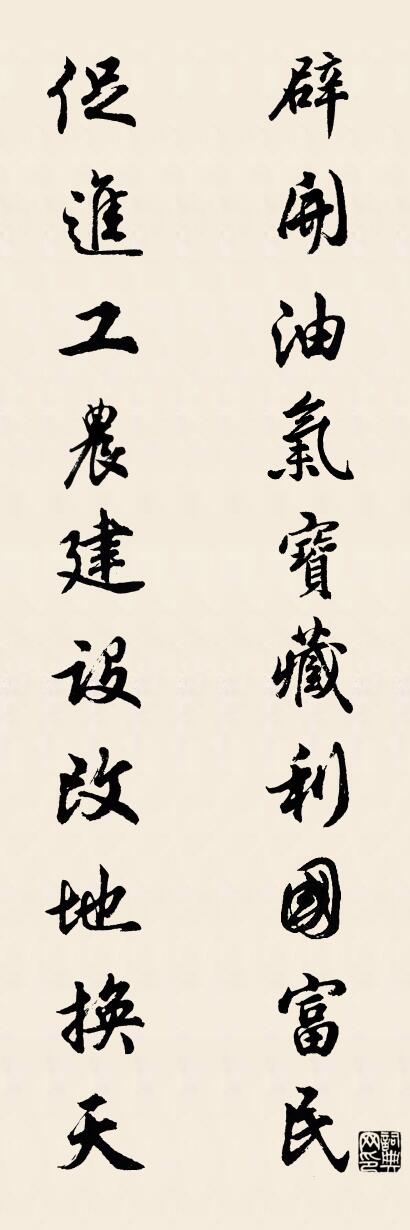 辟開油氣寶藏利國富民
促進工農建設改地換天
詞典網印